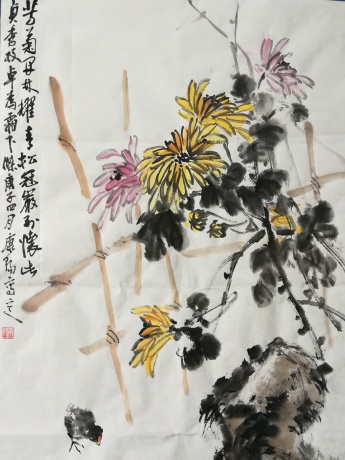 芳菊开林耀青松冠巖列懷此
貞秀枝卓為霜下傑庚子四月康寫之